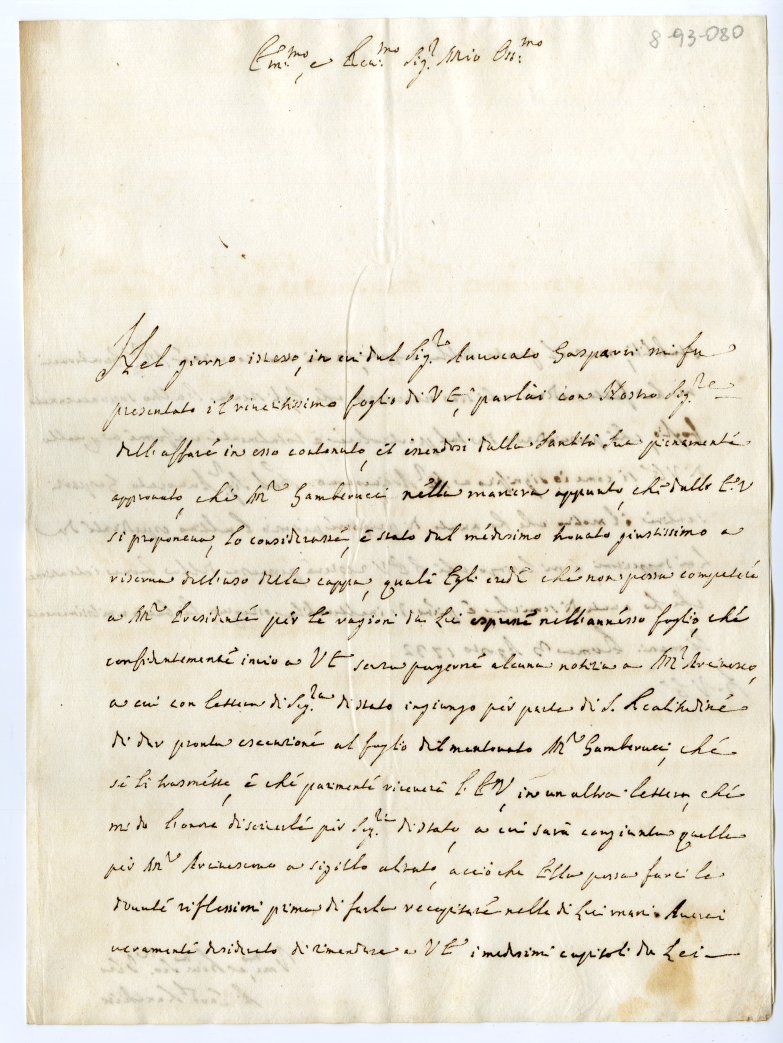 8-93-080
Em.mo, e Rev.mo Sig.r Mio Oss.mo
Nel giorno istesso, in cui dal Sig.re Avvocato Gasparri mi fu
presentato il riveritissimo foglio di VE, parlai con Nostro Sig.re
dell'affare in esso contenuto, et essendosi dalla Santità Sua pienamente
approvato, che M.r Gamberucci nella maniera appunto, che dalla E.V
si proponeva, lo considerasse, è stato dal medesimo trovato giustissimo a
riserva dell'uso della cappa, quale Egli crede che non possa competere
a M.r Presidente per le ragioni da Lei espresse nell'annesso foglio, che
confidentemente invio a VE senza porgerne alcuna notizia a M.r Arcivesco,
a cui con lettera di Seg.ria di stato ingiungo per parte di S. Beatitudine
di dar pronta esecuzione al foglio del mentovato M.r Gamberucci, che
se li trasmette, e che parimente riceverà l'EV, in un altra lettera, che
mi do l'onore di scriverle per Seg.ria di stato, a cui sarà congiunta quella
per M.r Arcivescovo a sigillo alzato, acciò che Ella possa farci le
dovute riflessioni prima di farla recapitare nelle di Lui mani. Averei
veramente desiderato di rimandare a VE i medesimi capitoli da Lei